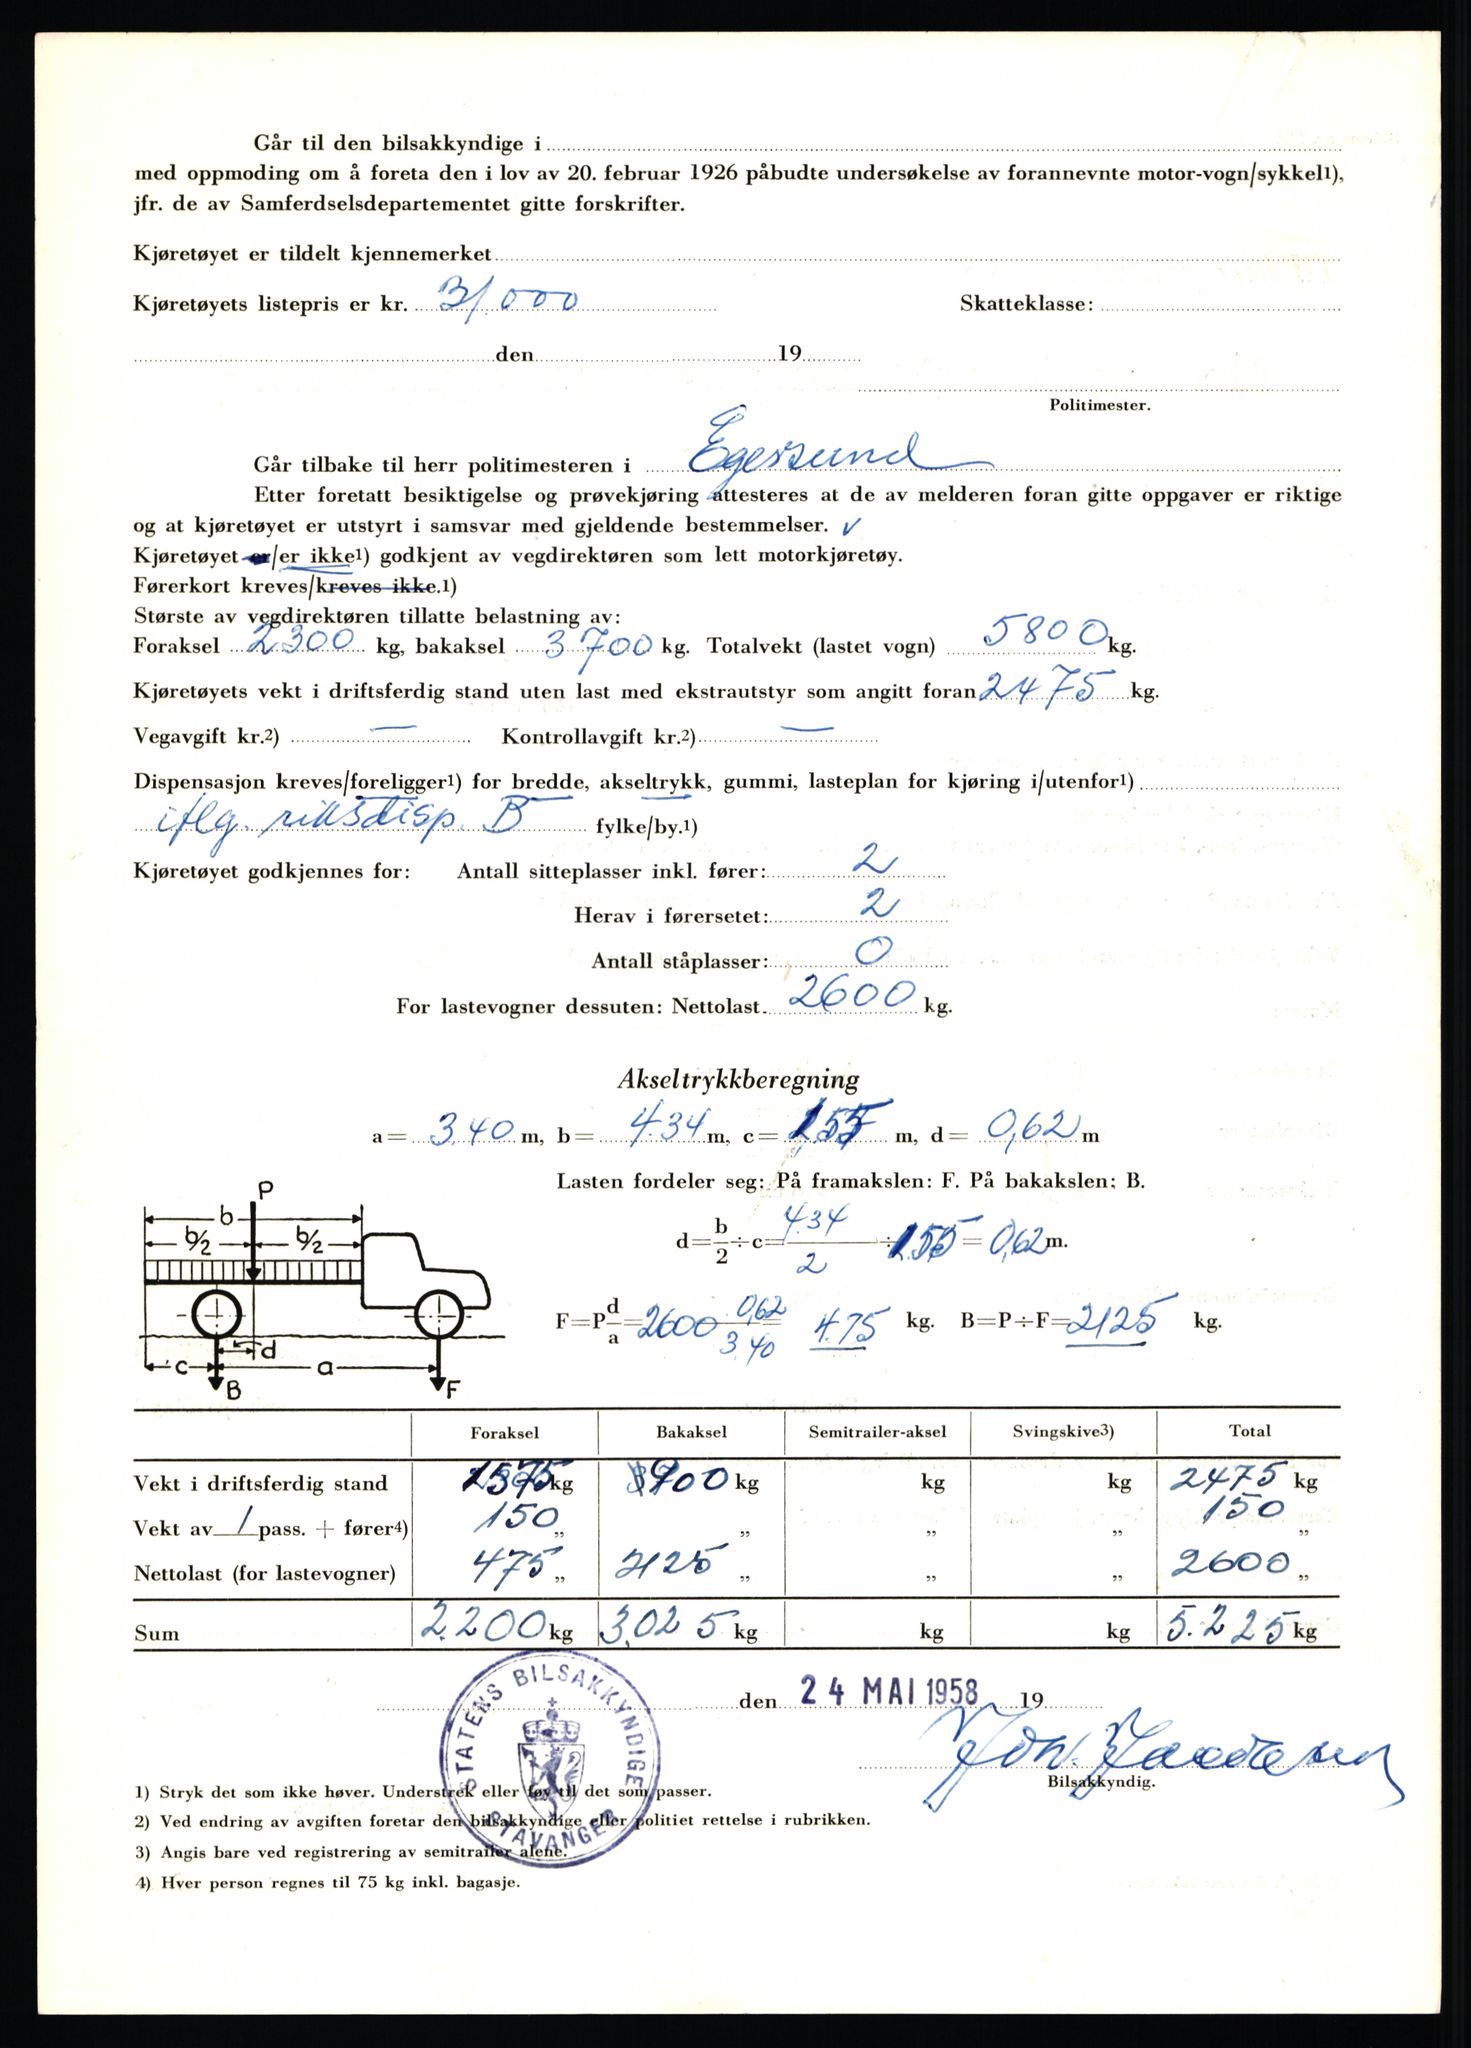 Går til den bilsakkyndige i
med oppmoding om å foreta den i lov av 20. februar 1926 påbudte undersøkelse av forannevnte motor-vogn/sykkel1),
jfr. de av Samferdselsdepartementet gitte forskrifter.
Kjøretøyet er tildelt kjennemerket
Kjøretøyets listepris er kr. 31.000 Skatteklasse:
den 19
Politimester.
Går tilbake til herr politimesteren i Egersund
Etter foretatt besiktigelse og prøvekjøring attesteres at de av melderen foran gitte oppgaver er riktige
og at kjøretøyet er utstyrt i samsvar med gjeldende bestemmelser. v
Kjøretøyet er/er ikke1) godkjent av vegdirektøren som lett motorkjøretøy.
Førerkort kreves/kreves ikke.1)
Største av vegdirektøren tillatte belastning av:
Foraksel 2300 kg, bakaksel 3700 kg. Totalvekt (lastet vogn) 5800 kg.
Kjøretøyets vekt i driftsferdig stand uten last med ekstrautstyr som angitt foran 2475 kg.
Vegavgift kr.2) — Kontrollavgift kr.2) —
Dispensasjon kreves/foreligger1) for bredde, akseltrykk, gummi, lasteplan for kjøring i/utenfor1)
iflg. riksdisp. B fylke/by.1)
Kjøretøyet godkjennes for: Antall sitteplasser inkl. fører: 2
Herav i førersetet: 2
Antall ståplasser: 0
For lastevogner dessuten: Nettolast 2600 kg.
Akseltrykkberegning
a = 3,40 m, b = 4.34 m, c = 1,55 m, d = 0,62 m
Lasten fordeler seg: På framakslen: F. På bakakslen: B.
d = b/2 ÷ c = 4.34/2 ÷ 1.55 = 0,62 m.
F = P d/a = 2600 0,62/3.40 = 475 kg. B = P ÷ F = 2125 kg.
P
b
b/2 b/2
d
c a
B F
Foraksel Bakaksel Semitrailer-aksel Svingskive3) Total
Vekt i driftsferdig stand 1575 kg 900 kg kg kg 2475 kg
Vekt av 1 pass. + fører4) 150 „ „ „ „ 150 „
Nettolast (for lastevogner) 475 „ 2125 „ „ „ 2600 „
Sum 2.200 kg 3,025 kg kg kg 5.225 kg
den 24 MAI 1958 19
STATENS BILSAKKYNDIGE
STAVANGER
Bilsakkyndig.
1) Stryk det som ikke høver. Understrek eller føy til det som passer.
2) Ved endring av avgiften foretar den bilsakkyndige eller politiet rettelse i rubrikken.
3) Angis bare ved registrering av semitrailer alene.
4) Hver person regnes til 75 kg inkl. bagasje.